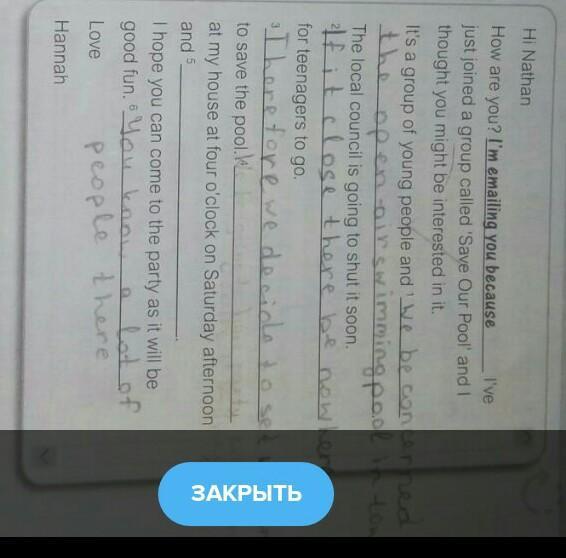 Hi Nathan
How are you? I'm emailing you because I've
just joined a group called 'Save Our Pool' and I
thought you might be interested in it.
It's a group of young people and 1 We be concerned
the open-air swimming pool in
The local council is going to shut it soon.
2 If it close there be
for teenagers to go.
3 Therefore we decide to set
to save the pool. 4 party
at my house at four o'clock on Saturday afternoon
and 5 .
I hope you can come to the party as it will be
good fun. 6 You know a lot of
people there
Love
Hannah
ЗАКРЫТЬ